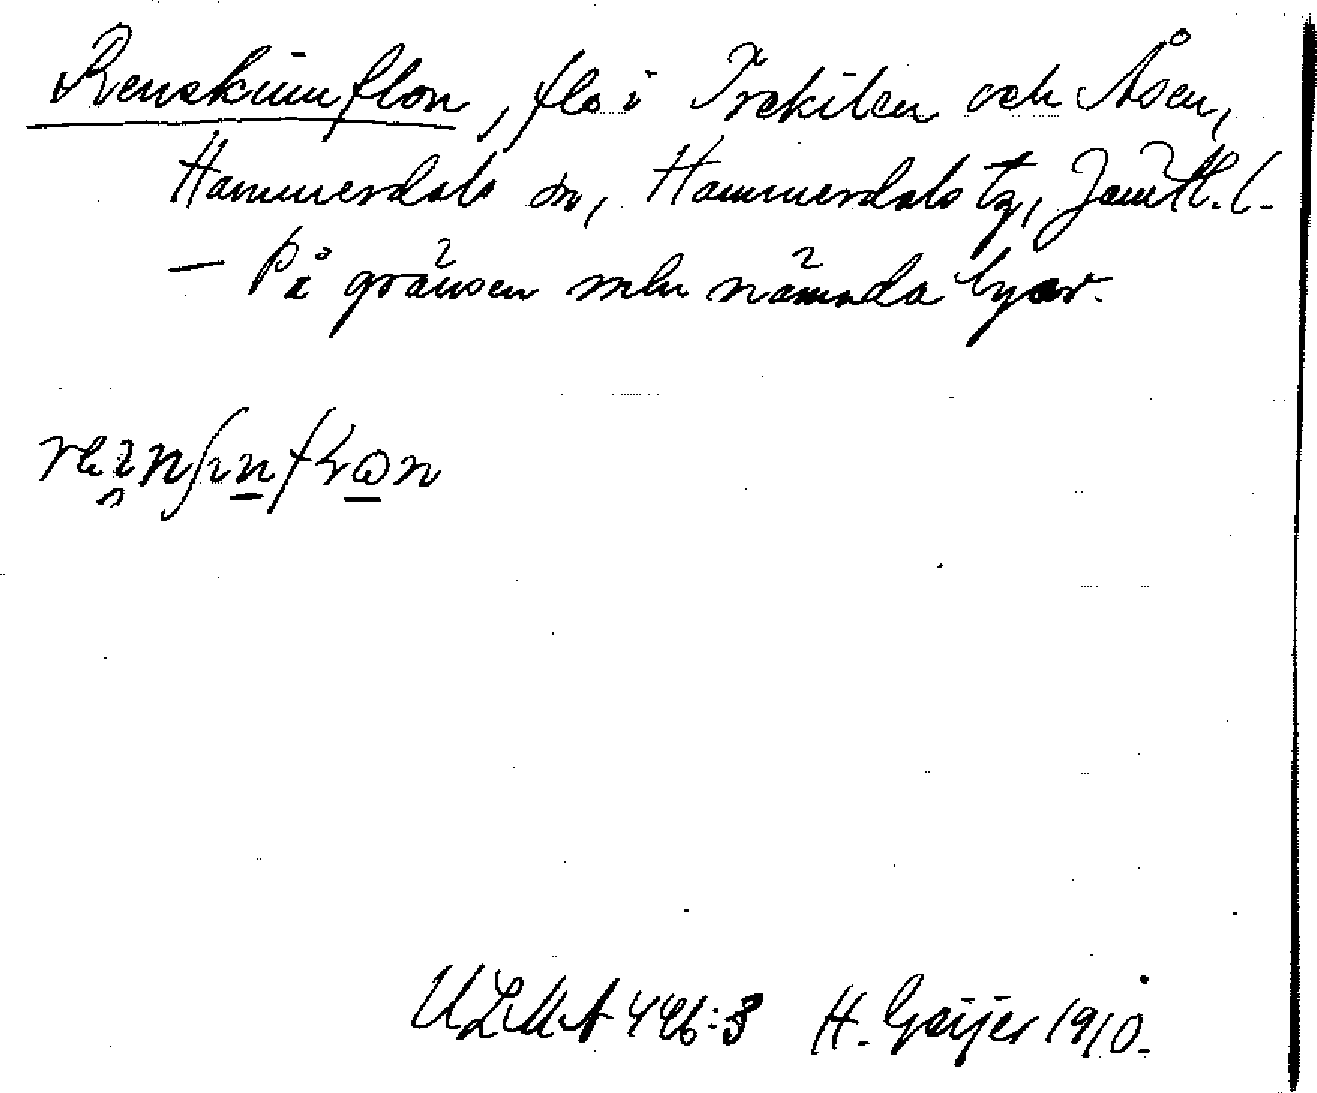 Renskinnflon, flo i Frekilen och Åsen,
Hammerdals sn, Hammerdals tg, Jämtl. l.
— På gränsen mln nämnda byar.
ULMA 446:3 H. Geijer 1910.